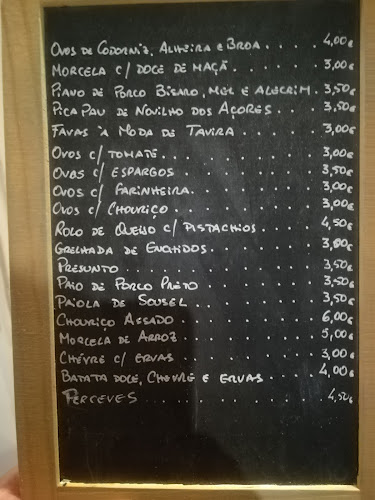 Ovos de Codorniz, Alheira e Broa . . . . 4,00€
Morcela c/ Doce de Maçã . . . . . . . 3,00€
Piano de Porco Bísaro, Mel e Alecrim . 3,50€
Pica Pau de Novilho dos Açores . . . . 3,50€
Favas à Moda de Tavira . . . . . . . 3,00€
Ovos c/ Tomate . . . . . . . . . . . 3,00€
Ovos c/ Espargos . . . . . . . . . . 3,50€
Ovos c/ Farinheira . . . . . . . . . 3,00€
Ovos c/ Chouriço . . . . . . . . . . 3,00€
Rolo de Queijo c/ Pistachios . . . . . 4,50€
Grelhada de Enchidos . . . . . . . . 3,00€
Presunto . . . . . . . . . . . . . . 3,50€
Paio de Porco Preto . . . . . . . . . 3,50€
Paiola de Sousel . . . . . . . . . . 3,50€
Chouriço Assado . . . . . . . . . . . 6,00€
Morcela de Arroz . . . . . . . . . . 5,00€
Chévre c/ Ervas . . . . . . . . . . . 3,00€
Batata Doce, Chévre e Ervas . . . . . 4,00€
Perceves . . . . . . . . . . . . . . 4,50€